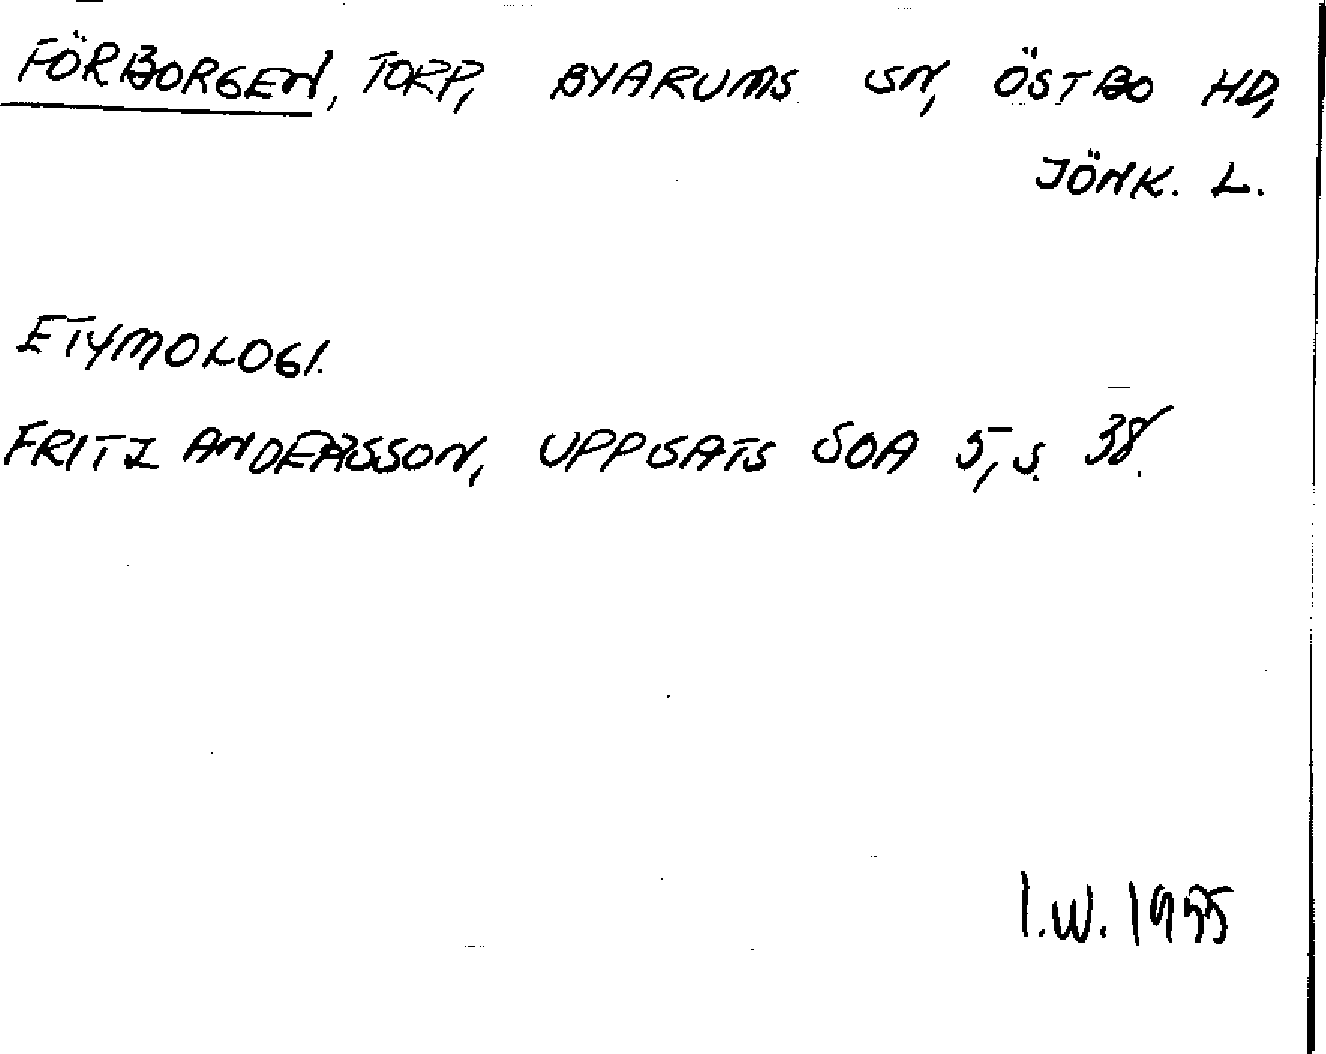 FÖRBORGEN, TORP, BYARUMS SN, ÖSTBO HD,
JÖNK. L.
ETYMOLOGI.
FRITZ ANDERSSON, UPPSATS SOA 5, S. 38.
I.W. 1955